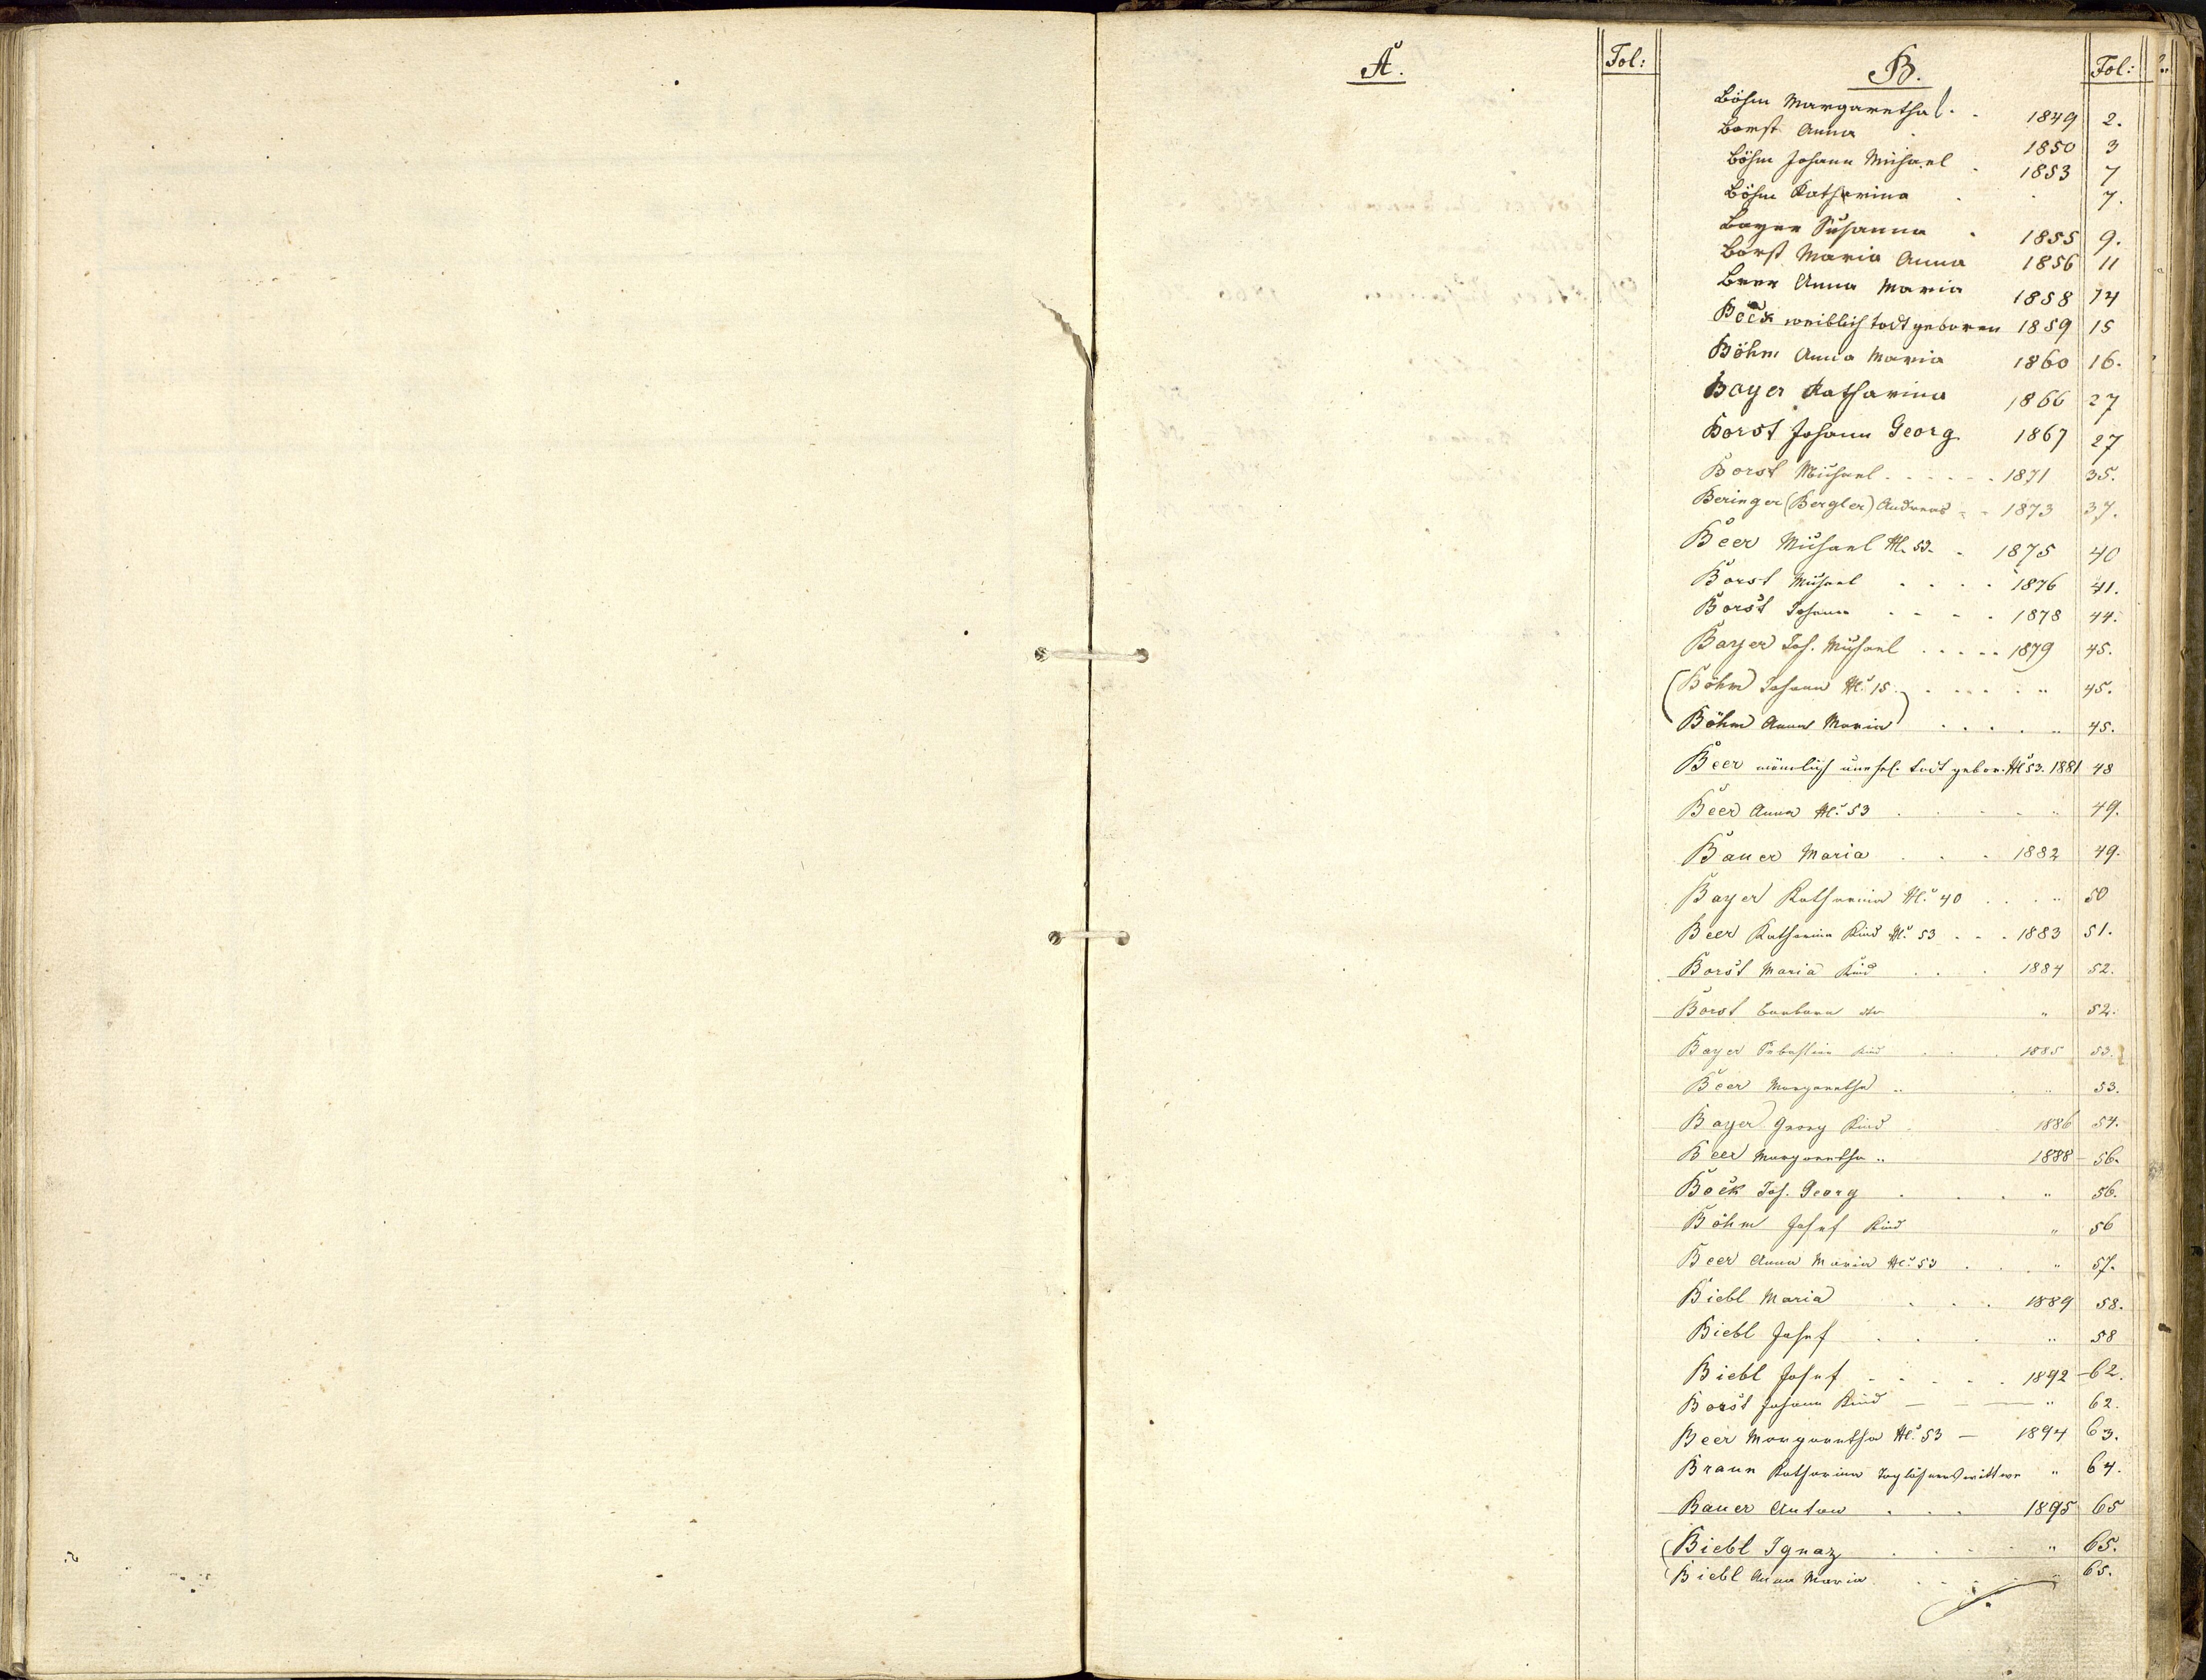 A.
Fol:
B.
Fol:
Böhm Margaretha . . 1849 2.
Borst Anna . 1850 3
Böhm Johann Michael . 1853 7
Böhm Katharina . . 7.
Bayer Susanna . 1855 9.
Borst Maria Anna 1856 11
Beer Anna Maria 1858 14
Böck weiblich todtgeboren 1859 15
Böhm Anna Maria 1860 16.
Bayer Katharina 1866 27
Borst Johann Georg 1867 27
Borst Michael . . . . . . 1871 35.
Beringer (Bergler) Andreas . . 1873 37.
Beer Michael N. 53. . 1875 40
Borst Michael . . . . 1876 41.
Borst Johann . . . . 1878 44.
Bayer Joh. Michael . . . . . 1879 45.
(Böhm Johann N. 15. . . . . . " 45.
Böhm Anna Maria) . . . . " 45.
Beer männlich todt gebor. N. 53. 1881 48
Beer Anna N. 53 . . . . " 49.
Bauer Maria . . . 1882 49.
Bayer Katharina N. 40 . . . " 50
Beer Katharina Kind N. 53 . . . 1883 51.
Borst Maria Kind . . . 1884 52.
Borst Barbara " 52.
Bayer Sebastian Kind . . . 1885 53.
Beer Margaretha " . " 53.
Bayer Georg Kind . . 1886 54.
Beer Margaretha " 1888 56.
Böck Joh. Georg . . . " 56.
Böhm Josef Kind " 56
Beer Anna Maria N. 53 . . . " 57.
Biebl Maria . . . 1889 58.
Biebl Josef . . . " 58
Biebl Josef . . . . . 1892 62.
Borst Johann Kind — — — " 62.
Beer Margaretha N. 53 — 1894 63.
Braun Katharina Taglöhnerswittwe " 64.
Bauer Anton . . . 1895 65
(Biebl Ignaz . . . . " 65.
(Biebl Anna Maria . . . . " 65.